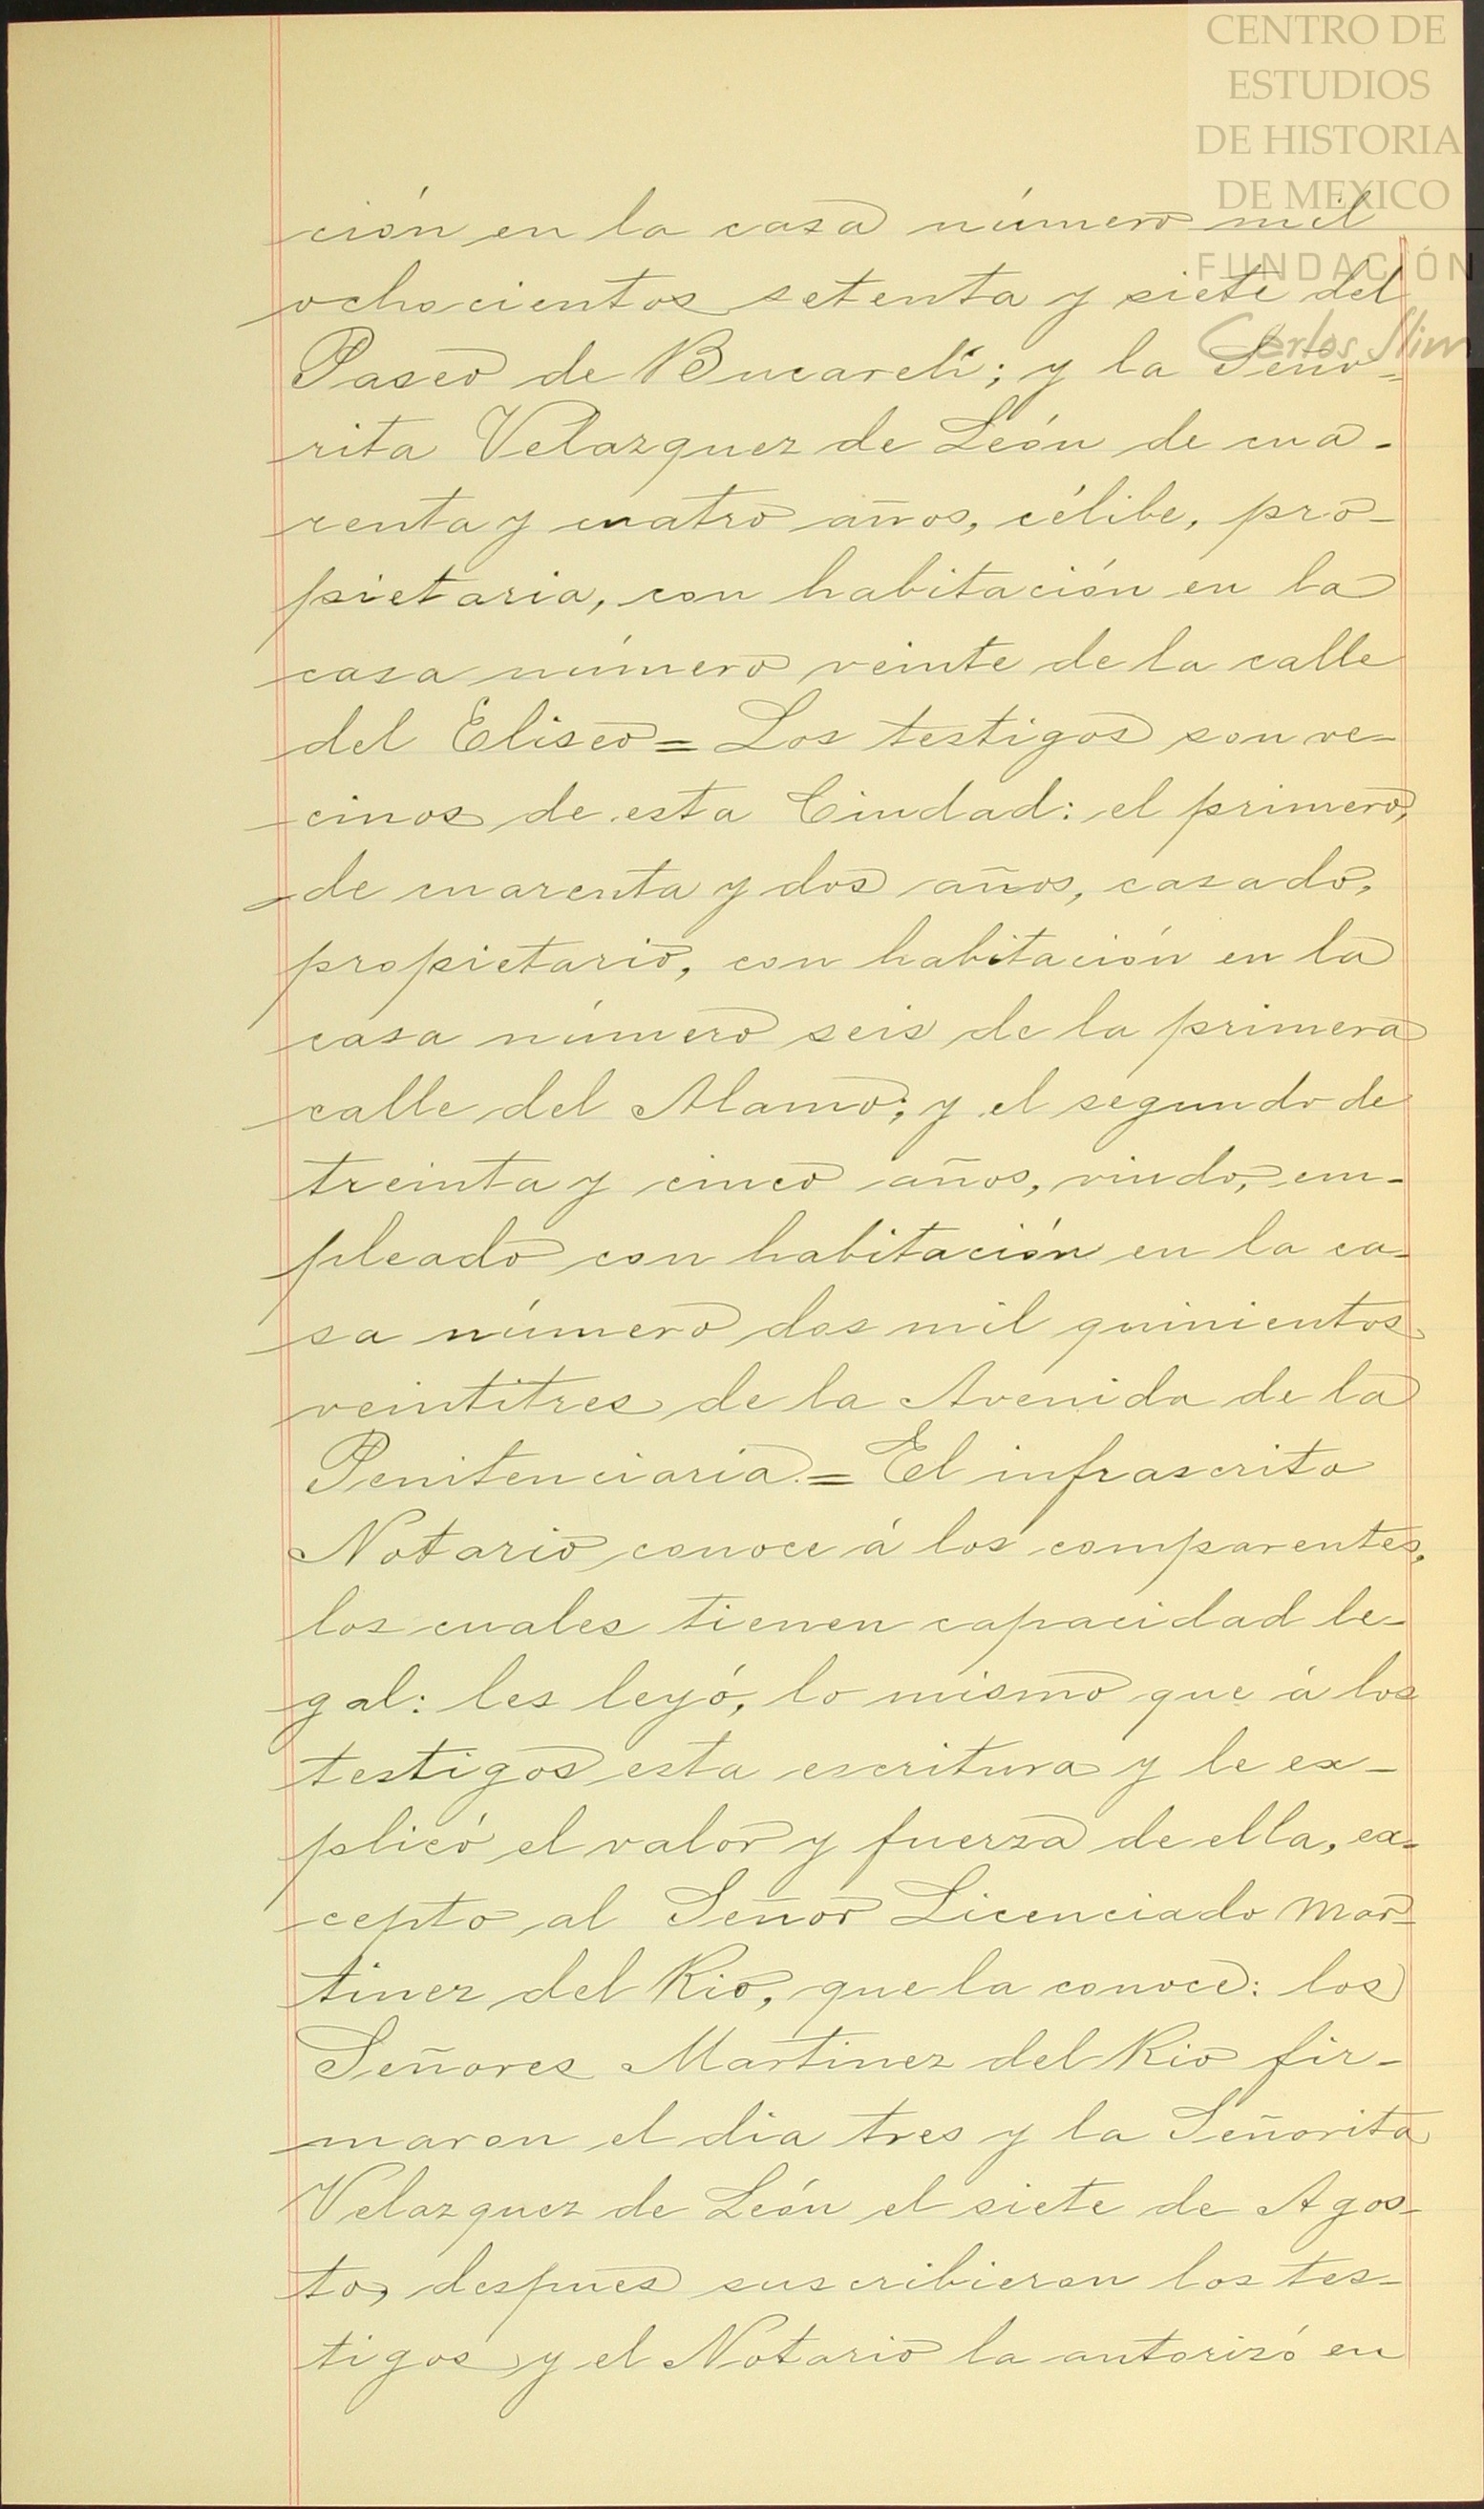 CENTRO DE
ESTUDIOS
DE HISTORIA
DE MEXICO
FUNDACIÓN
Carlos Slim
ción en la casa número mil
ochocientos setenta y siete del
Paseo de Bucareli; y la Seño-
rita Velazquez de León de cua-
renta y cuatro años, célibe, pro-
pietaria, con habitación en la
casa número veinte de la calle
del Eliseo = Los testigos son ve-
cinos de esta Ciudad: el primero,
de cuarenta y dos años, casado,
propietario, con habitación en la
casa número seis de la primera
calle del Alamo; y el segundo de
treinta y cinco años, viudo, em-
pleado con habitación en la ca-
sa número dos mil quinientos
veintitres de la Avenida de la
Penitenciaria. = El infrascrito
Notario conoce á los comparentes,
los cuales tienen capacidad le-
gal: les leyó, lo mismo que á los
testigos esta escritura y le ex-
plicó el valor y fuerza de ella, ex-
cepto al Señor Licenciado Mar-
tinez del Rio, que la conoce: los
Señores Martinez del Rio fir-
maron el dia tres y la Señorita
Velazquez de León el siete de Agos-
to, despues suscribieron los tes-
tigos y el Notario la autorizó en